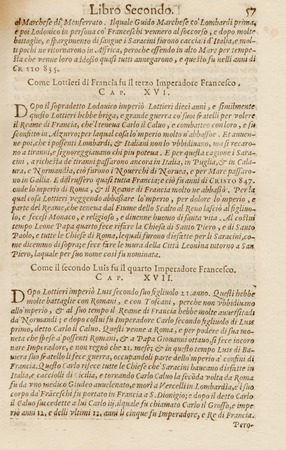 Libro Secondo. 57
al Marchese di Monferrato. Ilquale Guido Marchese co' Lombardi prima,
e poi Lodovico in persona co' Franceschi vennero al soccorso, e dopo molte
battaglie, e spargimento di sangue i Saracini furono cacciati d'Italia, e mol-
ti pochi ne ritornarono in Africa, peroche essendo in alto Mare per tempe-
sta che venne loro addosso quasi tutti annegarono, e questo fu nelli anni di
CRISTO 835.
Come Lottieri di Francia fu il terzo Imperadore Francesco.
CAP. XVI.
Dopo il sopradetto Lodovico imperiò Lottieri dieci anni, e similmente
questo Lottieri hebbe briga, e grande guerra co suoi fratelli per volere
il Reame di Francia, che teneva Carlo il Calvo, e combatteo con loro, e fu
sconfitto in Alzurro; per laqual cosa lo'mperio molto n'abbassòe. Et innanzi
un poco, che i possenti Lombardi, & Italiani non vbbidivano, ma si recaro-
no a tirannia, e signoreggiavano chi piu potea. E per questa cagione i Sara-
cini, a richesta de tiranni passarono ancora in Italia, in Puglia, & in Cala-
ura, e Normandia, ciò furono i Nouerchi di Nouera, e per Mare passaro-
no in Gallia. E distrussero quasi tutta Francia; e ciò fu anni di CRISTO 847.
onde lo'mperio di Roma, & il reame di Francia molto ne abbassò. Per la
qual cosa Lottieri veggendo abbassare lo'mperio, per dolore lo'mperio, e
parte del Reame, che tenea di Francia, di là dal fiume Rodano lasciò al figliuo-
lo, e fecesi Monaco, e religioso, e divenne huomo di santa vita. Al costui
tempo Leone Papa quarto fece rifare la Chiesa di Santo Piero, e di Santo
Paolo, e tutte le Chiesi di Roma, lequali furono disfatte per li Saracini, co-
me dicemmo di sopra; e fece fare le mura della Città Leonina intorno a San
Piero, laquale per suo nome così fu nominata.
Come il secondo Luis fu il quarto Imperadore Francesco.
CAP. XVII.
Dopo Lottieri imperiò Luis secondo suo figliuolo 21. anno. Questi hebbe
molte battaglie con Romani, e con Toscani, perche non vbbidivano
allo'mperio, & al suo tempo il Reame di Francia hebbe molte auuersità da
Normandi; e dopo costui fu Imperadore Carlo secondo figliuolo di Luis
primo, detto Carlo il Calvo. Questi venne a Roma, e per podere di sua mo-
neta che spese a possenti Romani, & a Papa Giovanni ottauo, si fece incoro
nare Imperadore, e non regnò che 21. mese; & in questo tempo Luis di Ba-
uiera suo fratello li fece guerra, occupandoli parte dello'mperio a' confini di
Francia. Questo Carlo rifece tutte le Chiese che' Saracini haueano disfatte in
Italia, e cacciolli di Cicilia, e tornando Carlo Calvo la seconda volta da Roma
fu da vno medico Giudeo auuelenato, e morì a Vercelli in Lombardia, e'l suo
corpo da' Fràceschi fu portato in Francia a S. Dionigio; e dopo il detto Carlo
il Caluo succedette a lui Carlo suo figliuolo, ilquale fu chiamato Carlo il Grosso, e impe-
riò anni 12. e delli vltimi 12. anni li cinque fu Imperadore, e Re di Francia.
Pero-